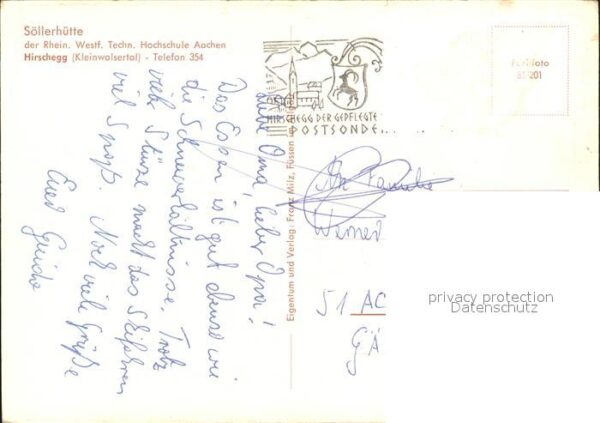 Söllerhütte
der Rhein. Westf. Techn. Hochschule Aachen
Hirschegg (Kleinwalsertal) - Telefon 354
Liebe Oma, lieber Opa!
Das Essen ist gut ebenso wie
die Schneeverhältnisse. Trotz
viele Stürze macht das Skifahren
viel Spaß. Noch viele Grüße
Eued Guido
HIRSCHEGG DER GEPFLEGTE
POSTSONDE
Eigentum und Verlag: Franz Milz, Füssen
An Familie
Werner
51 AC
GÄ
201
privacy protection
Datenschutz